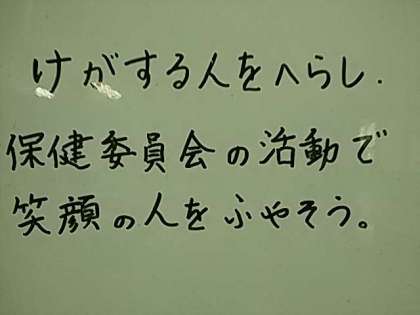 けがする人をへらし.
保健委員会の活動で
笑顔の人をふやそう。